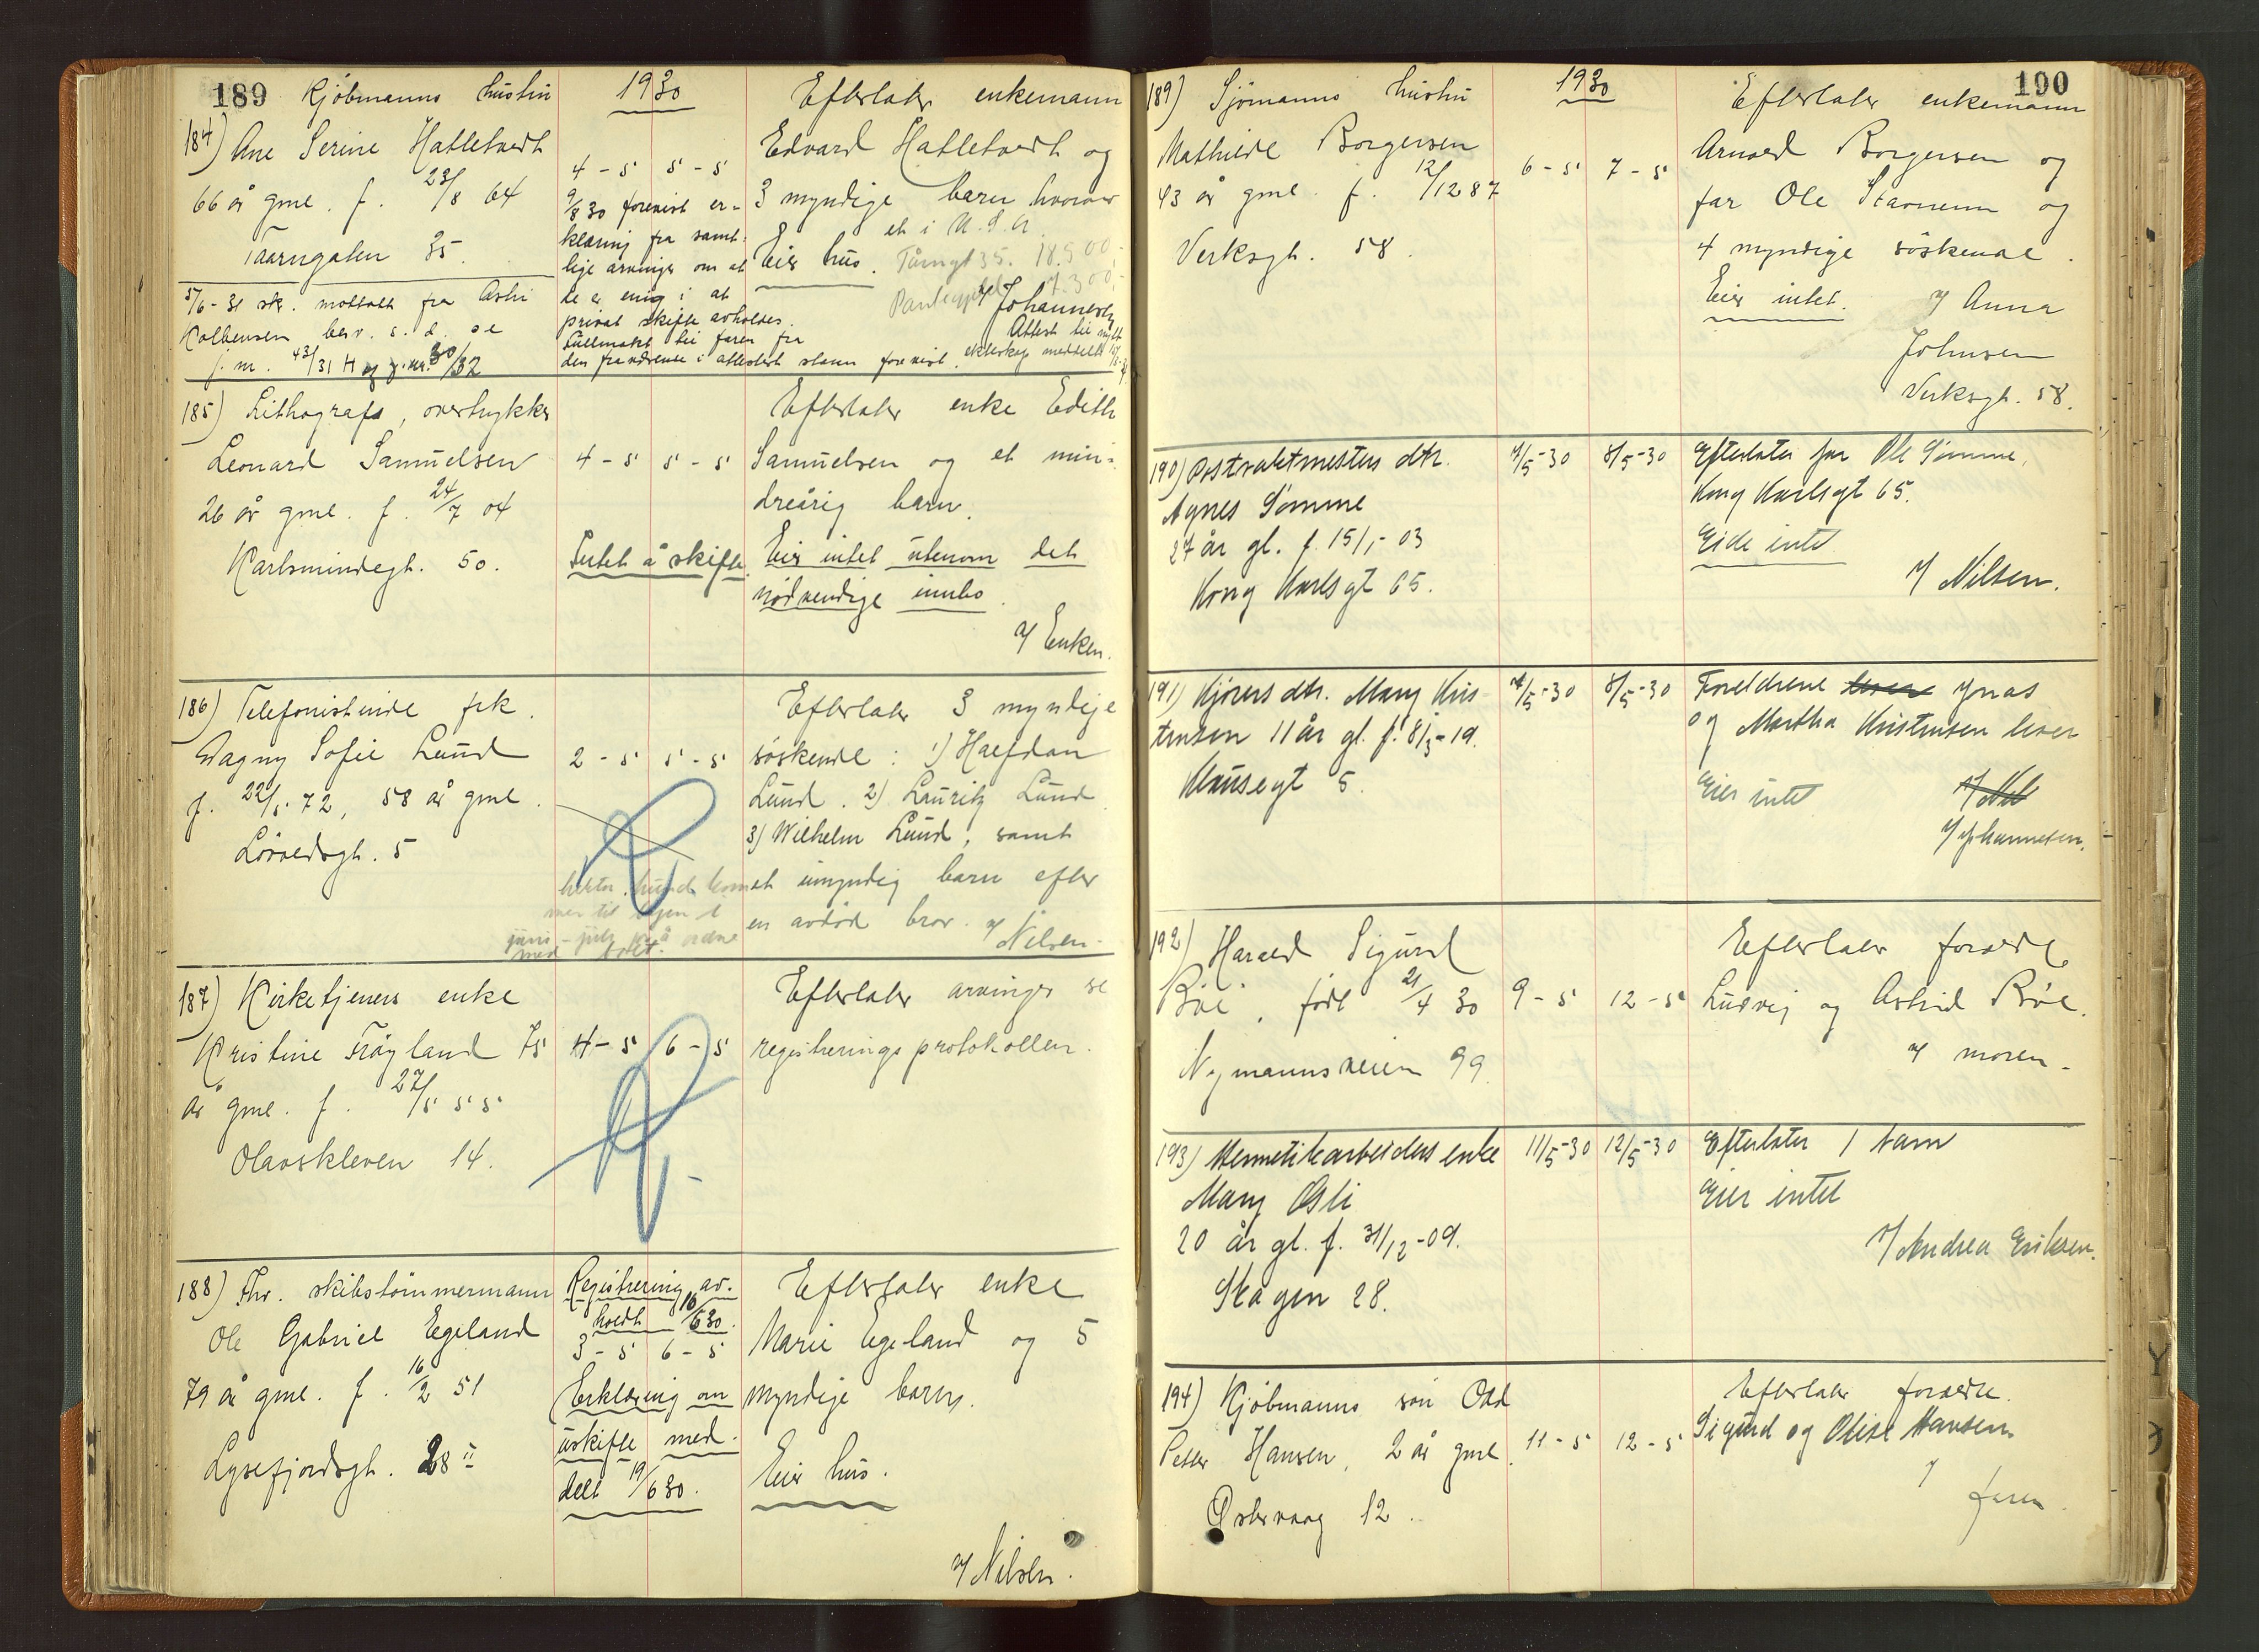 189 Kjöbmanns hustru
184) Ane Serine Hatletvedt
66 år gml. f. 23/8 64
Taarngaten 35.
5/6-31 sk. mottatt fra
berv. s. d. se
j. nr. 43/31 H og j.nr. 30/32
1930
4-5 5-5
9/8 30 forevist er-
klæring fra samt-
lige arvinger om at
de er enig i at
privat skifte avholdes.
Fullmakt til faren fra
den fraværende i attestert stann forevist.
Efterlater enkemann
Edvard Hatletvedt og
3 myndige barn hvorav
et i U.S.A.
Eier hus. Tårngt 35. 18.500.-
7.300.-
v/ Johannesen
Attest til nytt
ekteskap meddelt
185) Lithografs, overtrykker
Leonard Samuelsen
26 år gml. f. 24/7 04
Karlsmindegt. 50.
4-5 5-5
Intet å skifte.
Efterlater enke Edith
Samuelsen og et min-
dreårig barn.
Eier intet utenom det
nødvendige innbo.
v/ Enken.
186) Telefonistinde frk.
Dagny Sofie Lund
f. 22/5 72, 58 år gml.
Lövoldsgt. 5
2-5 5-5
hektor. Lund kom
mer til byen i
juni - july for å ordne
med boet.
Efterlater 3 myndige
söskende: 1) Halfdan
Lund. 2) Lauritz Lund
3) Wilhelm Lund, samt
et umyndig barn efter
en avdöd bror. v/ Nilsen.
187) Kirketjeners enke
Kristine Fröyland 75
år gml. f. 27/5 55
Olavskleven 14.
4-5 6-5
Efterlater arvinger se
registreringsprotokollen.
188) Fhv. skibstömmermann
Ole Gabriel Egeland
79 år gml. f. 16/2 51
Lysefjordsgt. 28 II
Registrering av-
holdt 16/6 30.
3-5 6-5
Erklæring om
uskifte med-
delt 19/6 30.
Efterlater enke
Marie Egeland og 5
myndige barn.
Eier hus.
v/ Nilsen.
190
189) Sjömanns hustru
Mathilde Borgersen
43 år gml. f. 12/12 87
Verksgt. 58.
1930
6-5 7-5
Efterlater enkemann
Arnold Borgersen og
far Ole Stavnem og
4 myndige söskende.
Eier intet. v/ Anna
Johnsen
Verksgt. 58.
190) Postvaktmesters dtr.
Agnes Sømme
27 år gl. f. 15/1-03
Kong Karlsgt 65.
7/5-30 8/5-30
Efterlater far Ole Sømme,
Kong Karlsgt 65.
Eide intet
v/ Nilsen.
191) Kjørers dtr. Mary Kris-
tensen 11 år gl. f. 8/3-19.
Klausegt 5.
7/5-30 8/5-30
Foreldrene lever Jonas
og Martha Kristensen lever
Eier intet
v/ Nil
v/ Johannesen.
192) Harald Sigurd
Böe, född 21/4 30
Nymannsveien 99.
9-5 12-5
Efterlater foreldre
Ludvig og Astrid Böe.
v/ moren.
193) Hermetikarbeiders enke
Mary Osli
20 år gl. f. 31/12-09.
Skagen 28.
11/5-30 12/5-30
Efterlater 1 barn
Eier intet
v/ Andrea Eriksen.
194) Kjöbmanns sön Odd
Petter Hansen, 2 år gml.
Østervaag 12.
11-5 12-5
Efterlater foreldre
Sigurd og Olise Hansen
v/ faren.